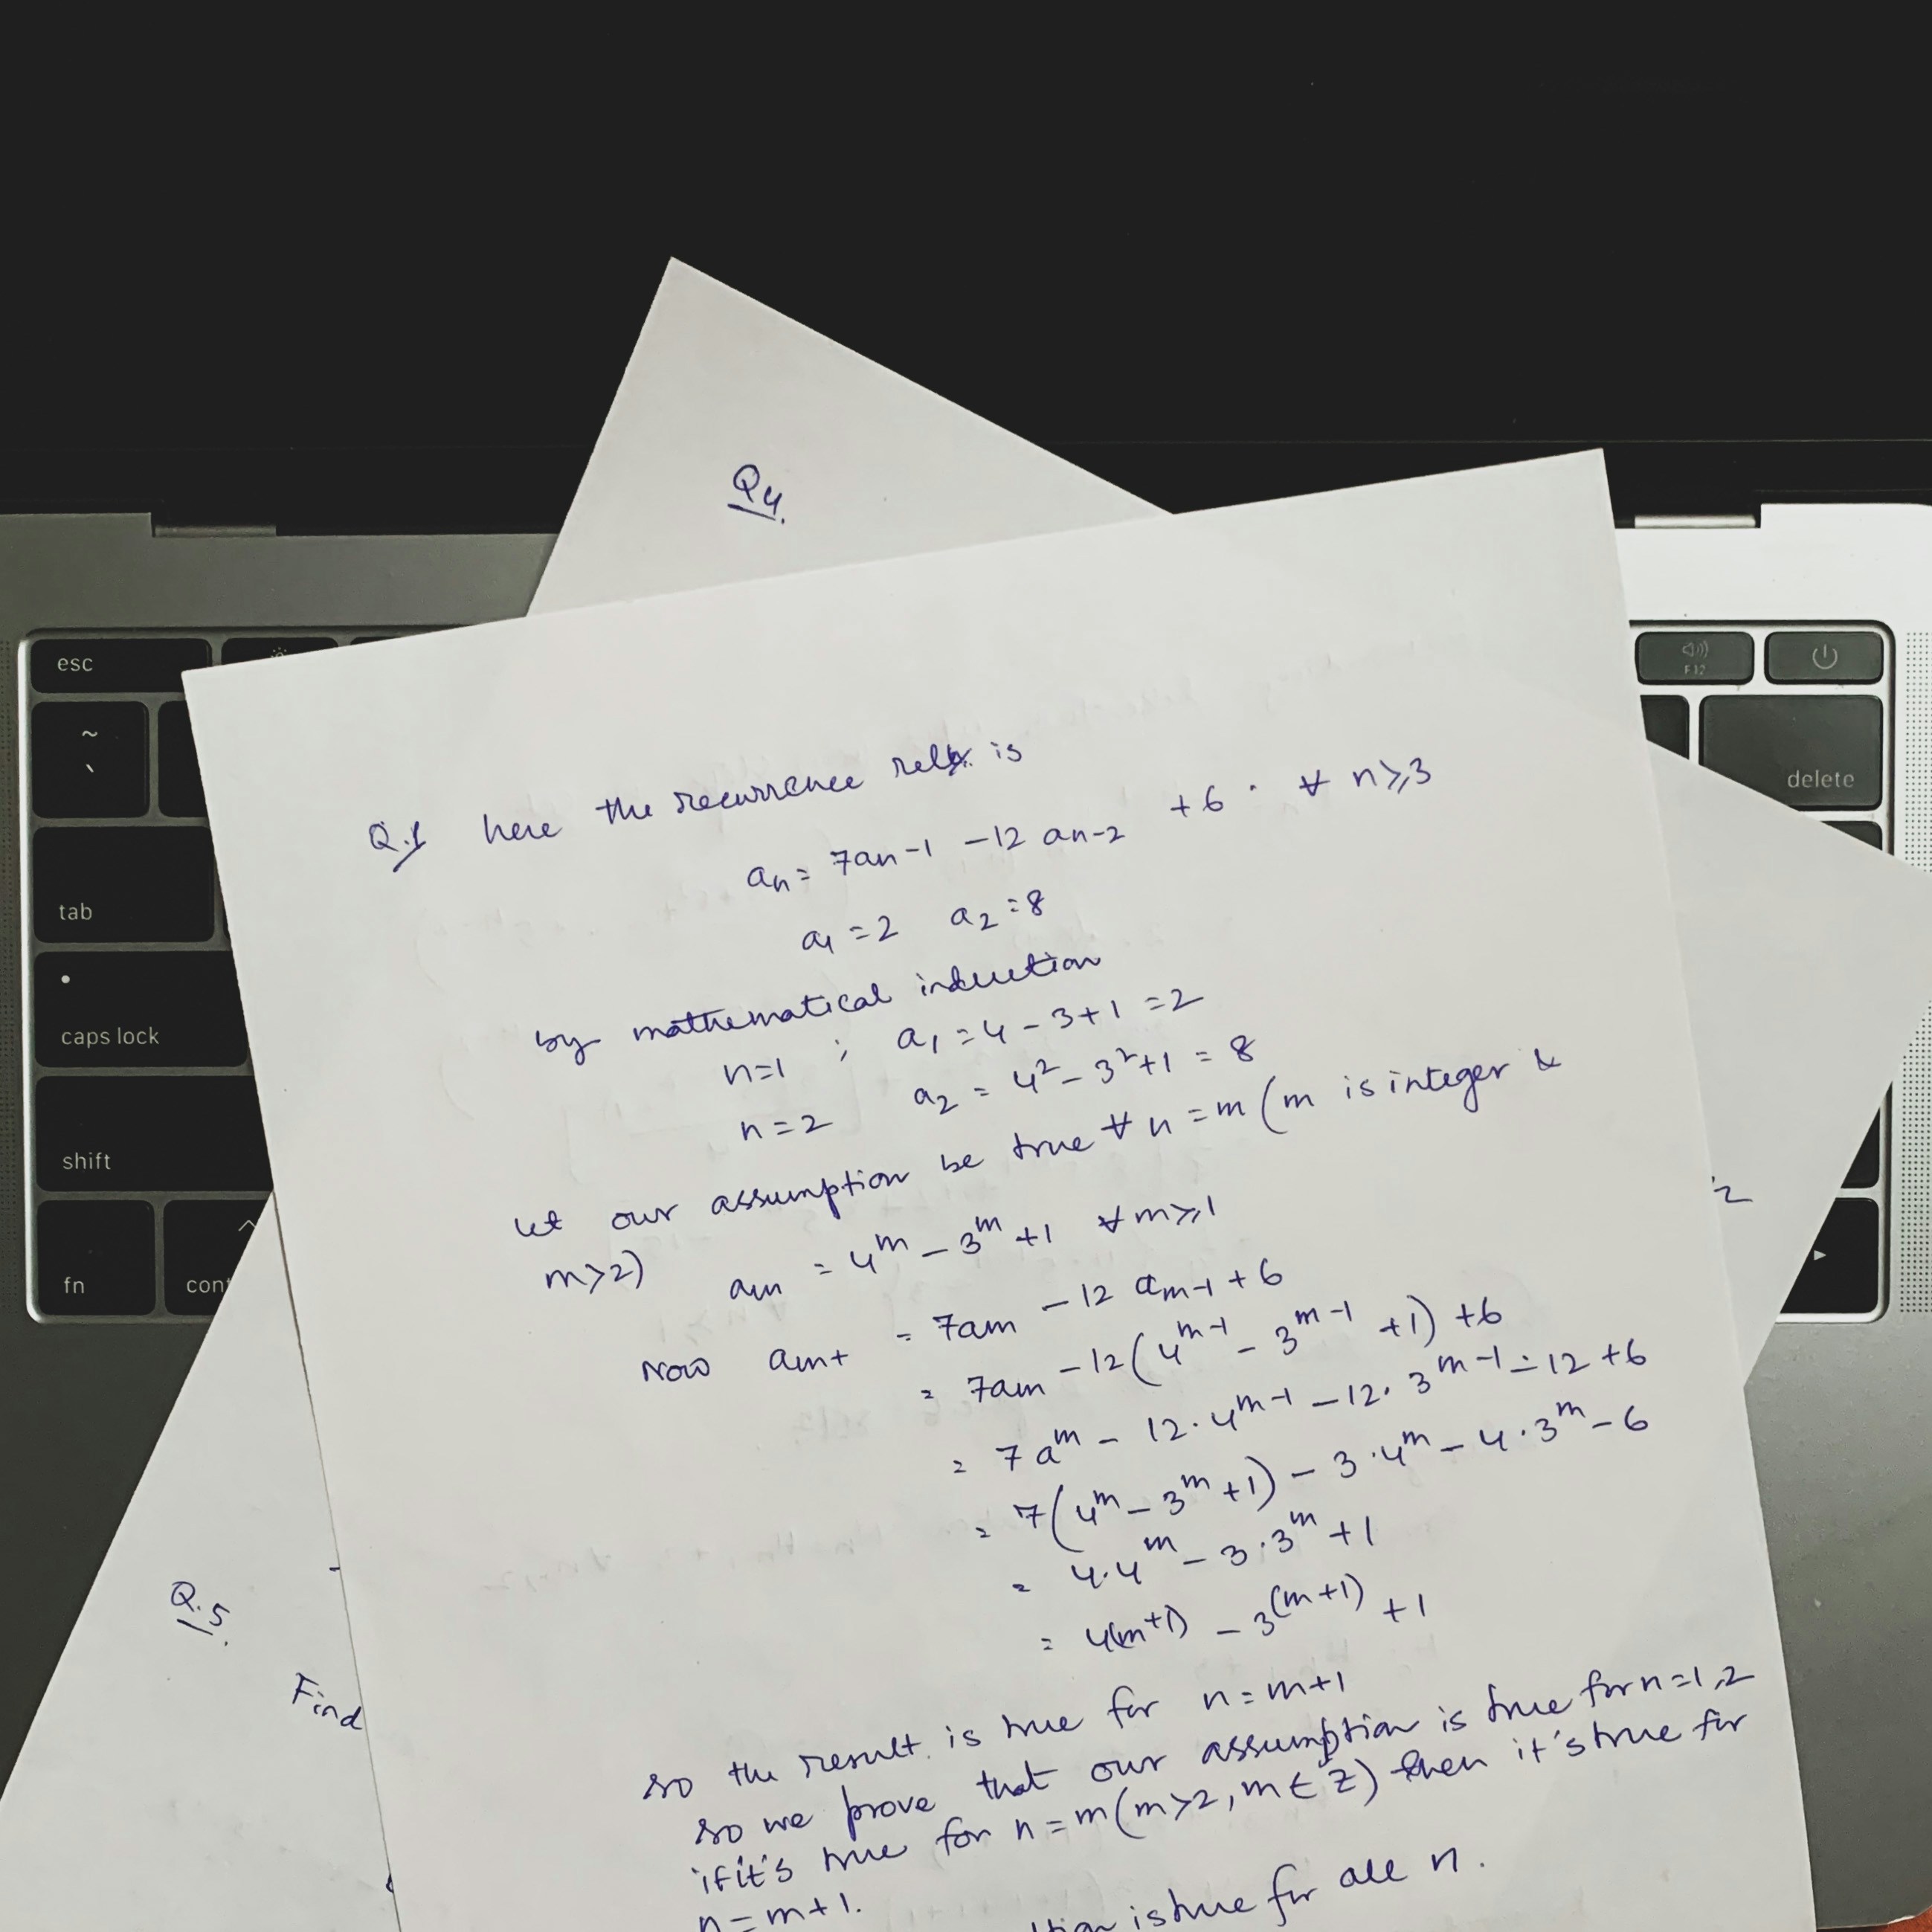 Q4.
esc
F12
~
`
delete
tab
caps lock
shift
fn
Q.1 here the recurrence is
an = 7an-1 -12 an-2 +6 . ∀ n≥3
a1 = 2 a2 = 8
by mathematical induction
n=1 ; a1 = 4 - 3+1 = 2
n=2 a2 = 4² - 3²+1 = 8
let our assumption be true ∀ n = m (m is integer &
m>2) am = 4^m - 3^m +1 ∀ m≥1
Now am+ = 7am - 12 am-1 + 6
= 7am - 12(4^m-1 - 3^m-1 +1) +6
= 7a^m - 12.4^m-1 - 12. 3^m-1 - 12 +6
= 7(4^m - 3^m +1) - 3.4^m - 4.3^m - 6
= 4.4^m - 3.3^m +1
= 4(m+1) - 3^(m+1) + 1
so the result. is true for n = m+1
so we prove that our assumption is true for n=1,2
if it's true for n = m (m>2, m ∈ Z) then it's true for
n = m+1.
is true for all n.
2
Q.5.
Find